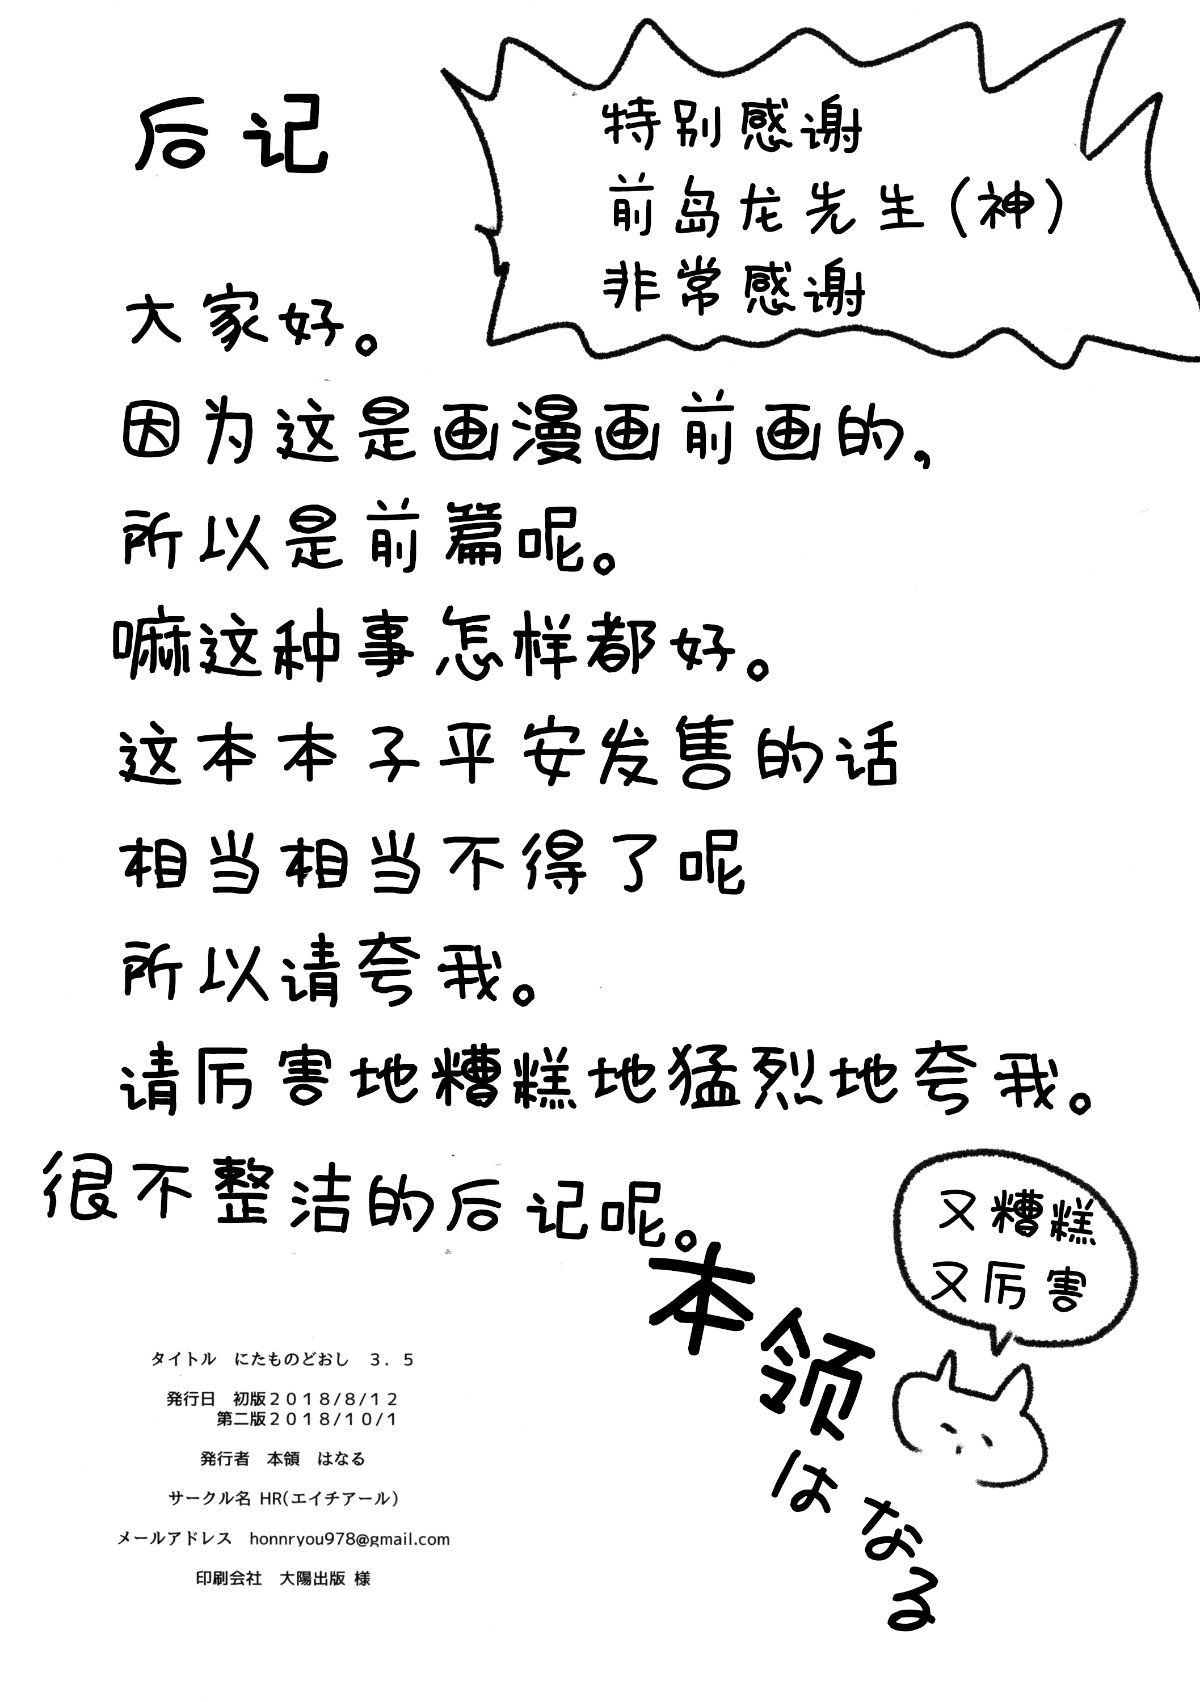 后记
特别感谢
前岛龙先生（神）
非常感谢
大家好。
因为这是画漫画前画的，
所以是前篇呢。
嘛这种事怎样都好。
这本本子平安发售的话
相当相当不得了呢
所以请夸我。
请厉害地糟糕地猛烈地夸我。
很不整洁的后记呢。
本领はなる
又糟糕
又厉害
タイトル　にたものどおし　３．５
発行日　初版２０１８/８/１２
第二版２０１８/１０/１
発行者　本領　はなる
サークル名 HR（エイチアール）
メールアドレス　honnryou978@gmail.com
印刷会社　大陽出版 様